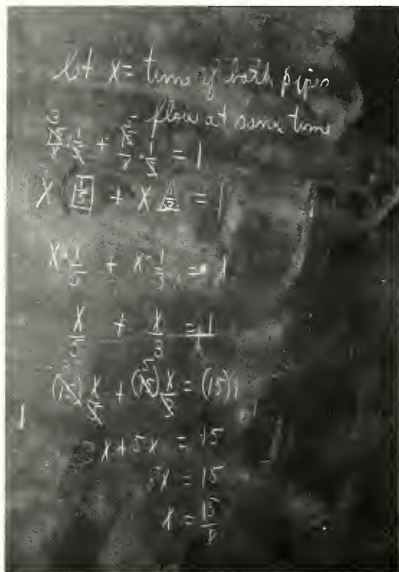 let X = time if both pipes
flow at same time
15/8 · 1/5 + 15/8 · 1/3 = 1
X 1/5 + X 1/3 = 1
X · 1/5 + X · 1/3 = 1
X/5 + X/3 = 1/1
(15) X/5 + (15) X/3 = (15) 1
3X + 5X = 15
8X = 15
X = 15/8